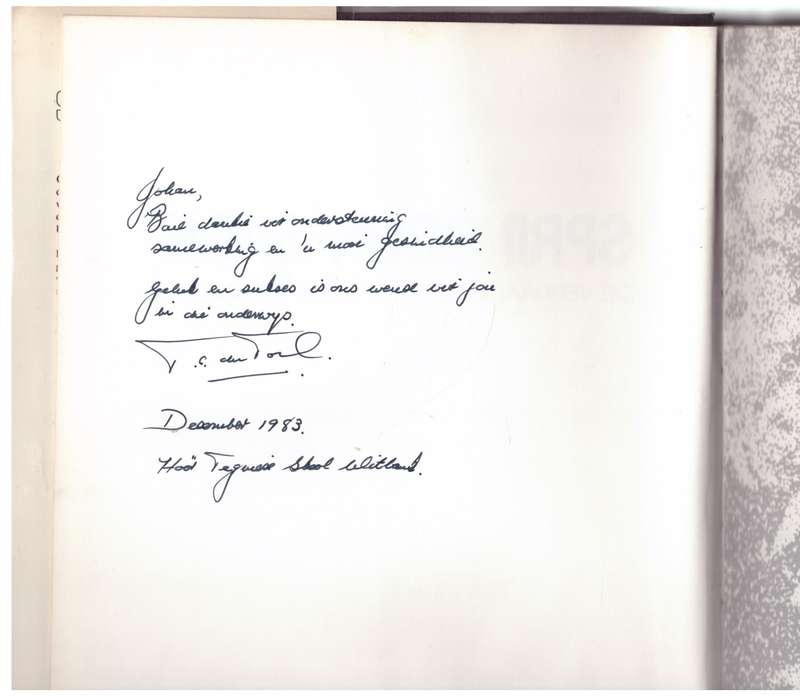 Johan,
Baie dankie vir ondersteuning
samewerking en 'n mooi gesindheid.
Geluk en sukses is ons wense vir jou
in die onderwys.
du Toit.
Desember 1983.
Hoër Tegniese Skool Witbank.
SPRI